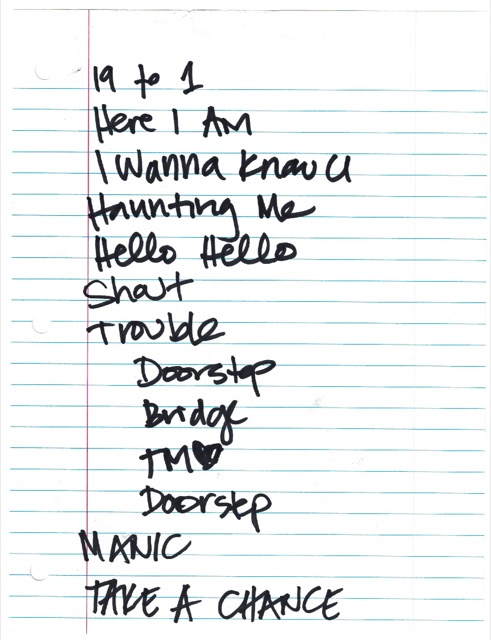 19 to 1
Here I Am
I Wanna Know U
Haunting Me
Hello Hello
Shout
Trouble
Doorstep
Bridge
TM♥
Doorstep
MANIC
TAKE A CHANCE